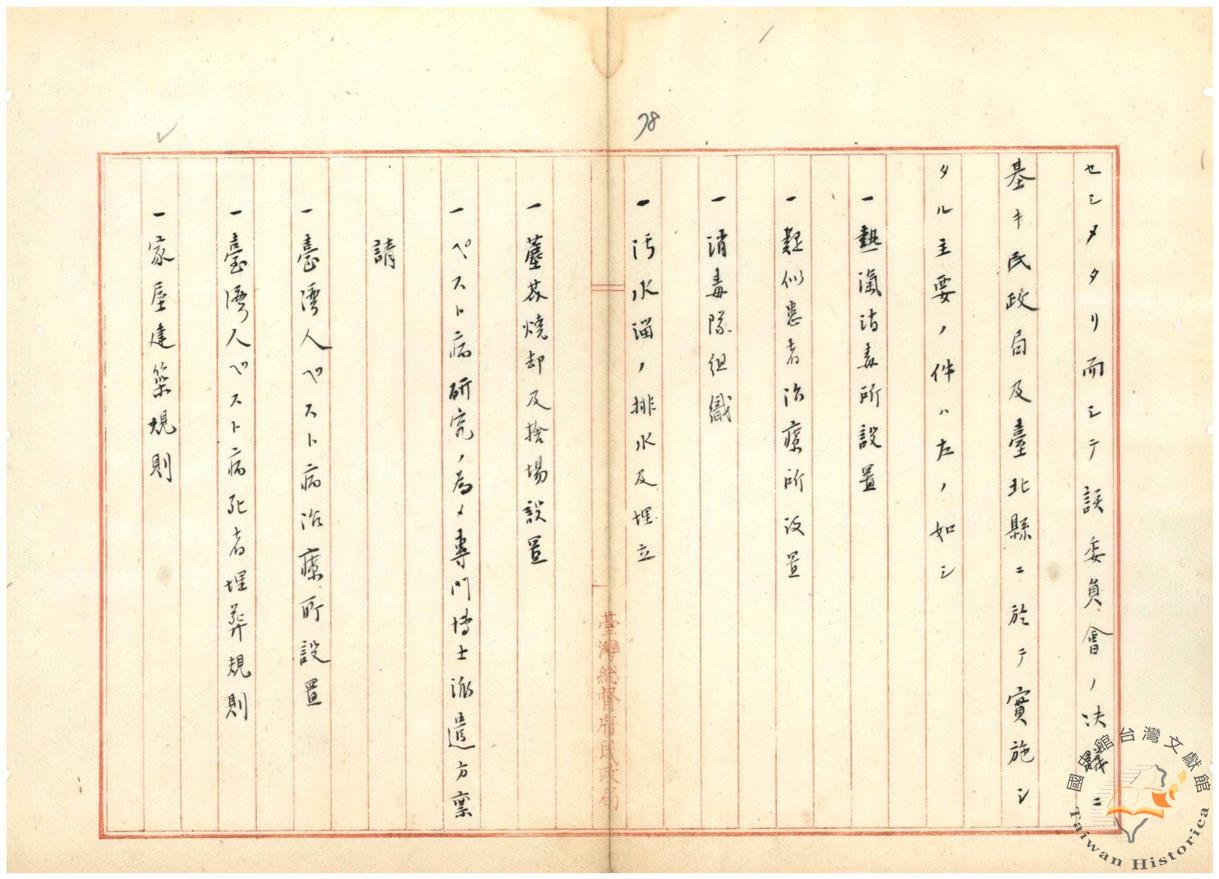 セシメタリ而シテ該委員會ノ决議ニ
基キ民政局及臺北縣ニ於テ實施シ
タル主要ノ件ハ左ノ如シ
一熱滊消毒所設置
一疑似患者治療所設置
一消毒隊組織
一汚水溜ノ排水及埋立
一塵芥燒却及捨場設置
一ペスト病研究ノ為メ專門博士派遣方稟
請
一臺灣人ペスト病治療所設置
一臺灣人ペスト病死者埋葬規則
一家屋建築規則
78
臺灣總督府民政局
國史館台灣文獻館
Taiwan Historica